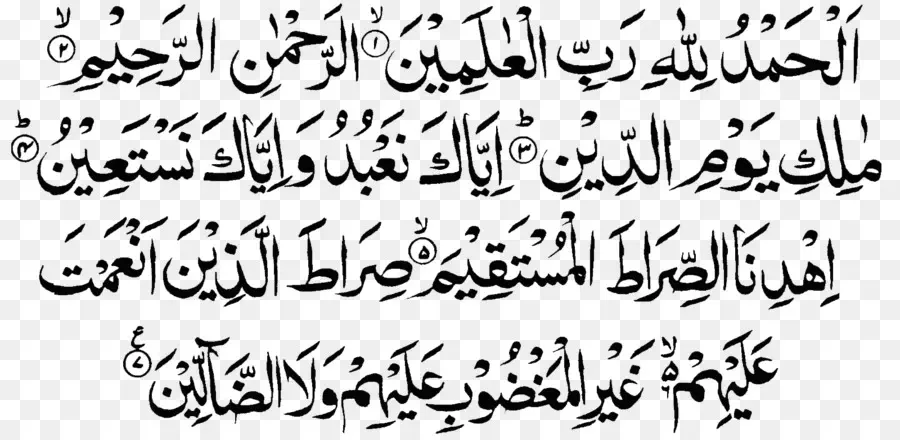 اَلْحَمْدُ لِلّٰهِ رَبِّ الْعٰلَمِيْنَ ۙ﴿۱﴾ الرَّحْمٰنِ الرَّحِيْمِ ۙ﴿۲﴾
مٰلِكِ يَوْمِ الدِّيْنِ ؕ﴿۳﴾ اِيَّاكَ نَعْبُدُ وَاِيَّاكَ نَسْتَعِيْنُ ؕ﴿۴﴾
اِهْدِنَا الصِّرَاطَ الْمُسْتَقِيْمَ ۙ﴿۵﴾ صِرَاطَ الَّذِيْنَ اَنْعَمْتَ
عَلَيْهِمْ ۙ۬ۥ غَيْرِ الْمَغْضُوْبِ عَلَيْهِمْ وَلَا الضَّآلِّيْنَ ﴿۷﴾ۧ